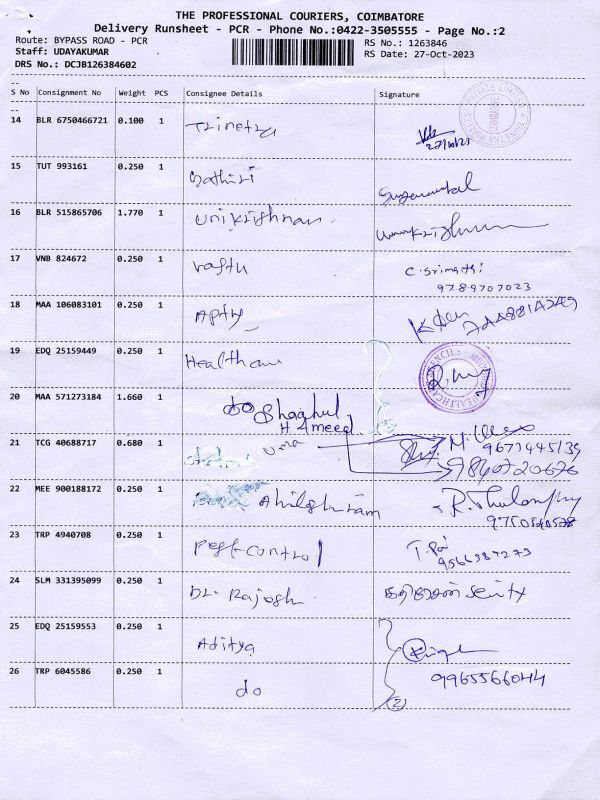 THE PROFESSIONAL COURIERS, COIMBATORE
Delivery Runsheet - PCR - Phone No.:0422-3505555 - Page No.:2
Route: BYPASS ROAD - PCR
RS No.: 1263846
Staff: UDAYAKUMAR
RS Date: 27-Oct-2023
DRS No.: DCJB126384602
S No Consignment No Weight PCS Consignee Details Signature
14 BLR 6750466721 0.100 1 Trinetra
27/10/23
15 TUT 993161 0.250 1
16 BLR 515865706 1.770 1 Unikrishnan
17 VNB 824672 0.250 1 Vastu C. Srimathi
9789707023
18 MAA 106083101 0.250 1
19 EDQ 25159449 0.250 1 Healthcare
20 MAA 571273184 1.660 1 do Shaahul
H Ameed
21 TCG 40688717 0.680 1 Uma
22 MEE 900188172 0.250 1 Ahilghiram
23 TRP 4940708 0.250 1 Pest control
9566387273
24 SLM 331395099 0.250 1 Dr. Rajesh
25 EDQ 25159553 0.250 1 Aditya
26 TRP 6045586 0.250 1 do 9965566044
(2)